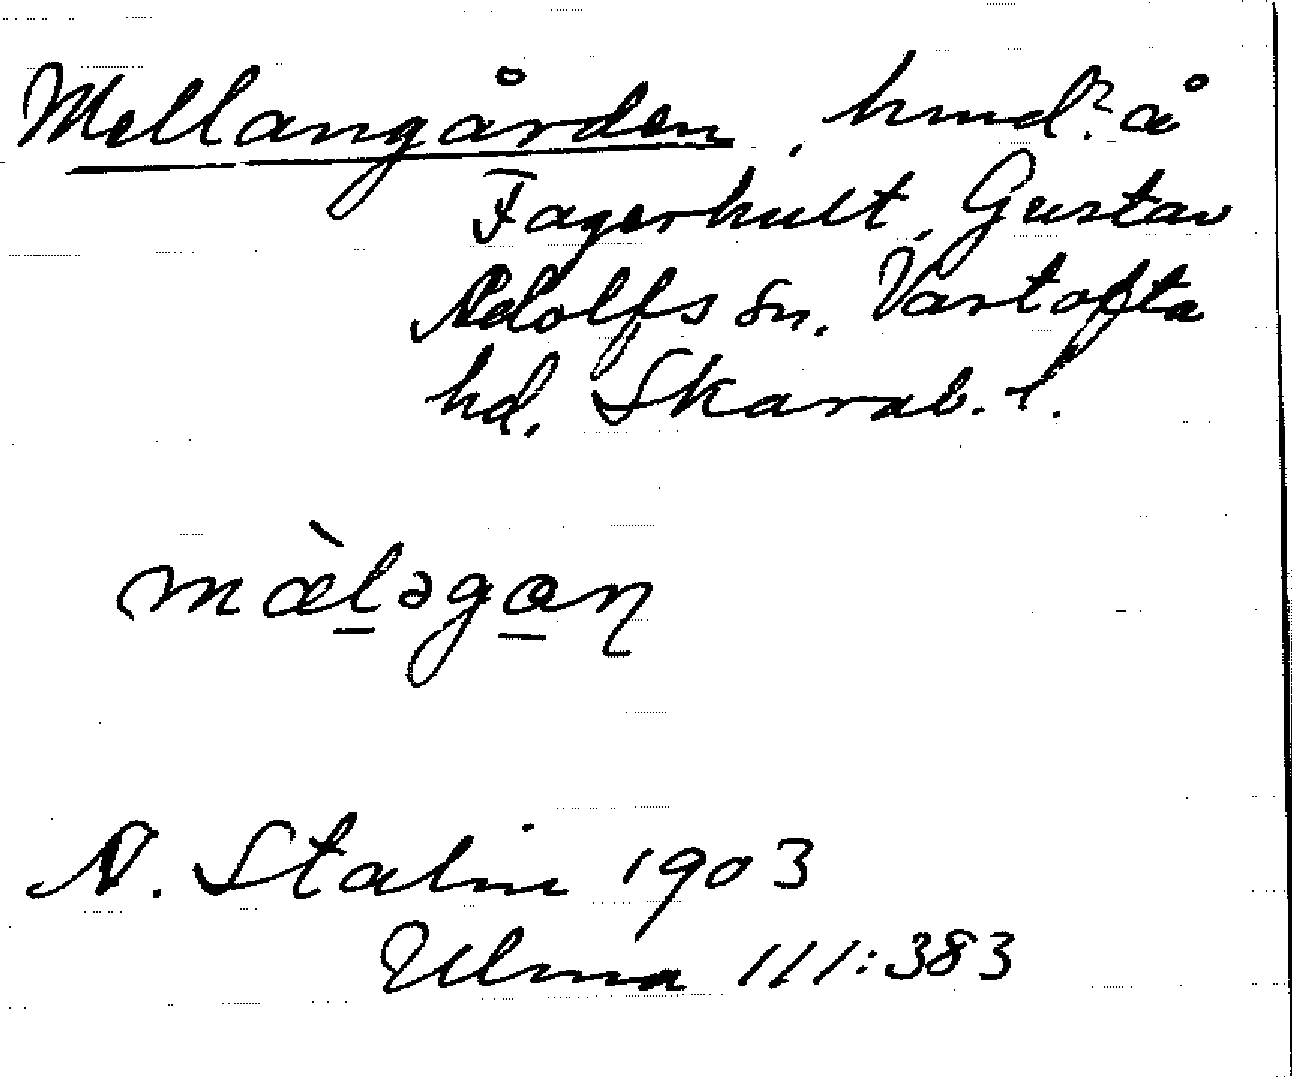 Mellangården, hmd? å
Fagerhult, Gustav
Adolfs sn. Vartofta
hd. Skarab. l.
mæ̀ləgan
A. Stalin 1903
Ulma 111:383